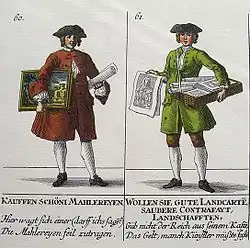 60.
61.
KAUFFEN SCHÖNI MAHLEREYEN.
Hier wagt sich einer (darff ichs sagē?)
Die Mahlereyen feil zutragen.
WOLLEN SIE GUTE LANDCARTE.
SAUBERE CONTRAFAYT,
LANDSCHAFFTEN,
Gäb nicht der Reich aus seinem Kasten
Das Gelt, manch Künstler müßte fasten